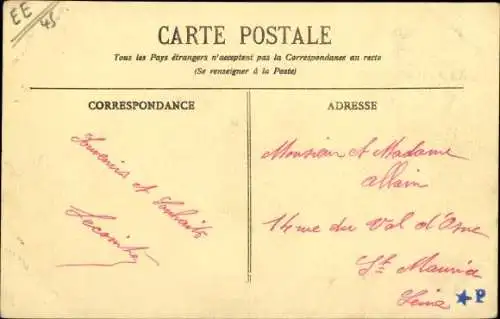 EE
45
CARTE POSTALE
Tous les Pays étrangers n'acceptent pas la Correspondance au recto
(Se renseigner à la Poste)
CORRESPONDANCE
ADRESSE
Souvenirs et Souhaits
Lecomte
Monsieur et Madame
Allain
14 rue du Val d'Osne
St Maurice
Seine
P